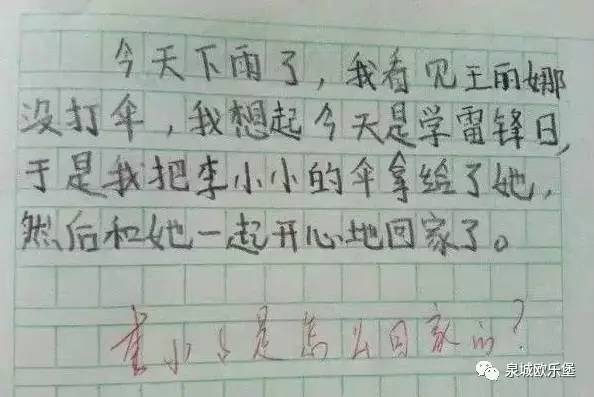 今天下雨了，我看见王丽娜
没打伞，我想起今天是学雷锋日，
于是我把李小小的伞拿给了她，
然后和她一起开心地回家了。
李小小是怎么回家的？
泉城欧乐堡